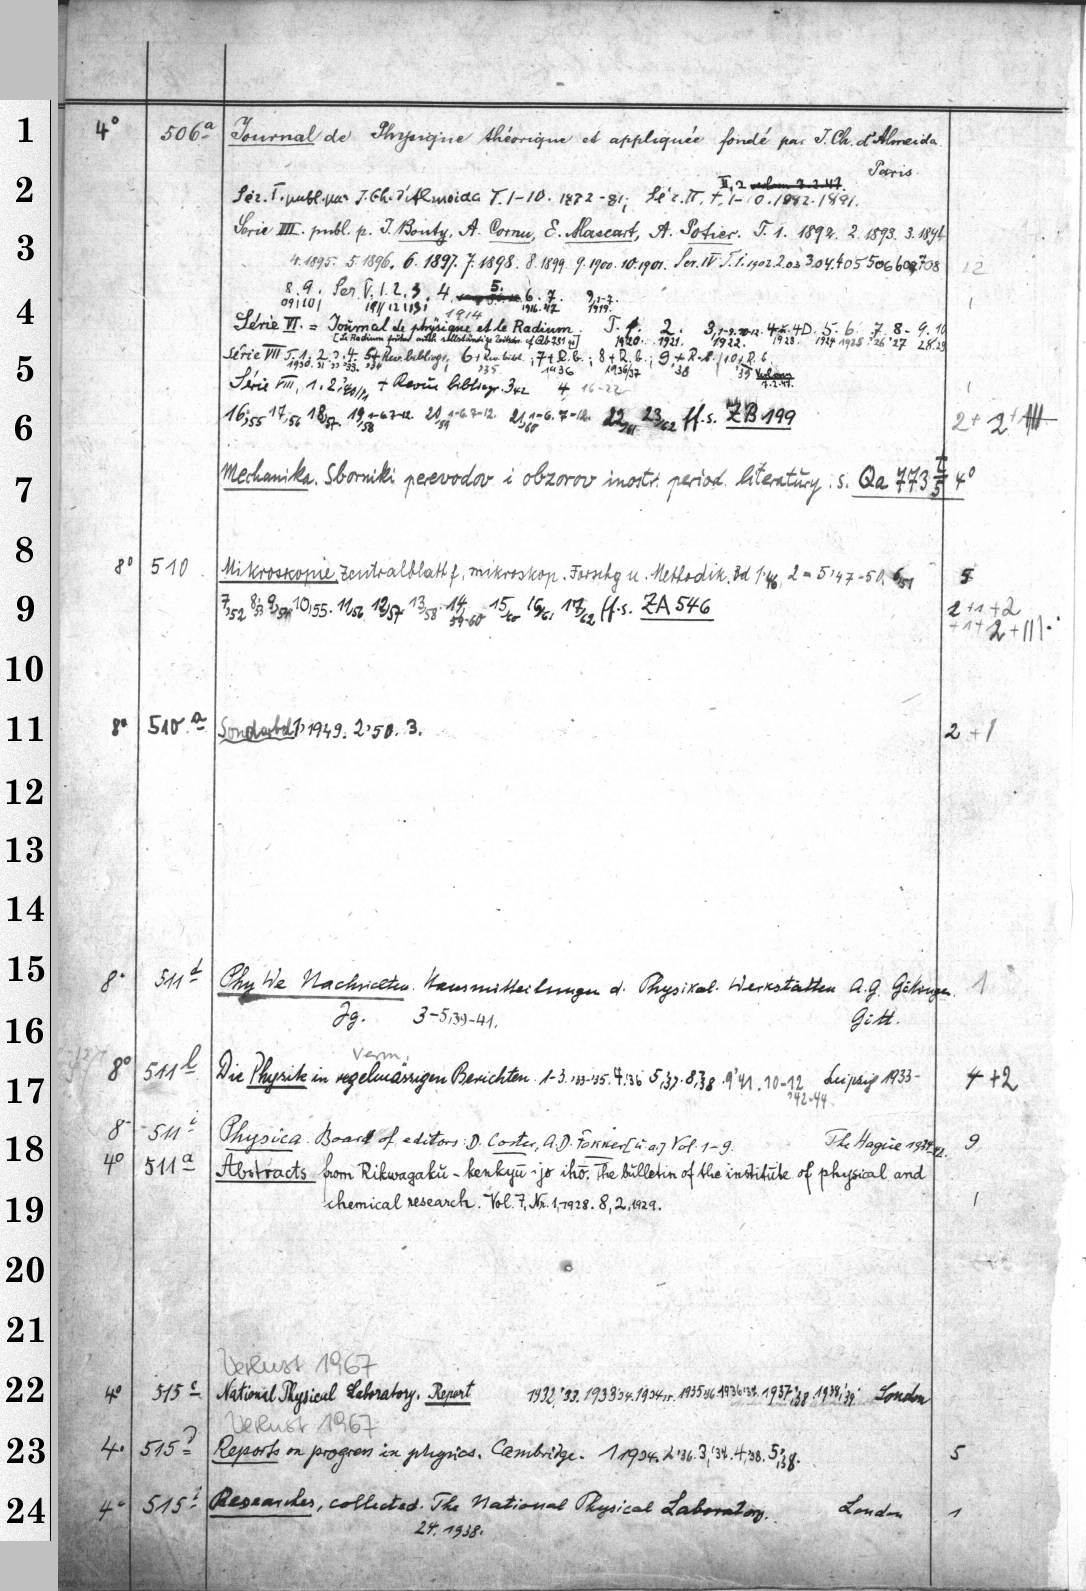 1 4° 506a Journal de Physique théorique et appliquée fondé par J. Ch. d'Almeida
Paris
2 Sér. I. publ. par J. Ch. d'Almeida T. 1-10. 1872-81; Sér. II, T. 1-10. 1882-1891.
3 Serie III. publ. p. J. Bouty, A. Cornu, E. Mascart, A. Potier. T. 1. 1892. 2. 1893. 3. 1894
4. 1895. 5. 1896. 6. 1897. 7. 1898. 8. 1899. 9. 1900. 10. 1901. Ser. IV T. 1. 1902. 2.03 3.04. 4.05 5.06 6.07 7.08 12
8. 9. Ser V. 1. 2. 3. 4. 5. 6. 7. 9.
09 10 1911 12 13 1914 1916. 17 1919. 1
4 Série VI. = Journal de physique et le Radium. T. 1. 2. 3, 4. 5. 6. 7. 8. 9. 10
1920. 1921. 1922. 1923 1924 1925 '26 '27 28 29
5 Série VII T. 1. 2. 3. 4. 5 + Rev. bibliogr. 6 + Rev. bibl.; 7 + R. b.; 8 + R. b.; 9 + R. b. 10 + R. b.
1930. 31 32 33 '34 '35 1936 1936/37 '38 '39
Série VIII, 1. 2, + Revue bibliogr. 3, 42 4, 16-22 1
6 16,55 17,56 18,57 19,58 20,59 1-6. 7-12. 21,60 1-6. 7-12. 22,61 23,62 ff. s. ZB 199 2 + 2 +
7 Mechanika. Sborniki perevodov i obzorov inostr. period. literatury. s. Qa 773 t/5 4°
8 8° 510 Mikroskopie, Zentralblatt f. mikroskop. Forschg u. Methodik. Bd 1, 46, 2 = 5, 47-50, 6,51 5
9 7,52 8,53 9,54 10,55. 11,56 12,57 13,58 14, 59-60 15,60 16,61 17,62 ff. s. ZA 546 2 + 1 + 2
+ 1 + 2 + III.
10
11 8° 510.a Sonderbd 1, 1949. 2, 50. 3. 2 + 1
12
13
14
15 8° 511d Phy We Nachrichten. Hausmitteilungen d. Physikal. Werkstätten A.G. Göttingen. 1
16 Jg. 3-5, 39-41. Gött.
verm.
17 8° 511l Die Physik in regelmässigen Berichten. 1-3. '33-'35. 4, 36 5, 37. 8, 38. 9, 41. 10-12 Leipzig 1933- 4 + 2
'42-44
18 8° 511i Physica. Board of editors: D. Coster, A.D. Fokker [u. a.] Vol. 1-9. The Hague 1934-42. 9
4° 511a Abstracts from Rikwagaku-kenkyū-jo ihō. The bulletin of the institute of physical and
19 chemical research. Vol. 7, Nr. 1, 1928. 8, 2, 1929. 1
20
21
Verlust 1967
22 4° 515c National Physical Laboratory. Report 1932, '33. 1933, 34. 1934, 35. 1935, 36. 1936, 37. 1937, 38 1938, '39 London
Verlust 1967
23 4° 515 Reports on progress in physics. Cambridge. 1 1934. 2, '36. 3, '37. 4, '38. 5, 38. 5
24 4° 515i Researches, collected. The National Physical Laboratory. London 1
24. 1938.